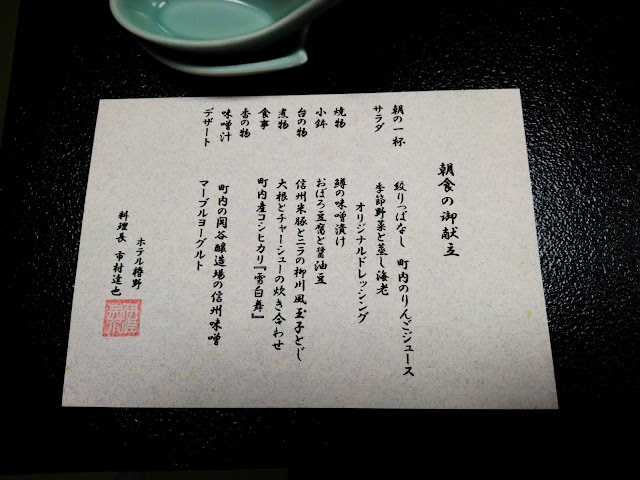 朝食の御献立
朝の一杯　絞りっぱなし　町内のりんごジュース
サラダ　季節野菜と蒸し海老
オリジナルドレッシング
焼物　鱒の味噌漬け
小鉢　おぼろ豆腐と醤油豆
台の物　信州米豚とニラの柳川風玉子とじ
煮物　大根とチャーシューの炊き合わせ
食事　町内産コシヒカリ『雪白舞』
香の物
味噌汁　町内の関谷醸造場の信州味噌
デザート　マーブルヨーグルト
ホテル椿野
料理長　市村達也